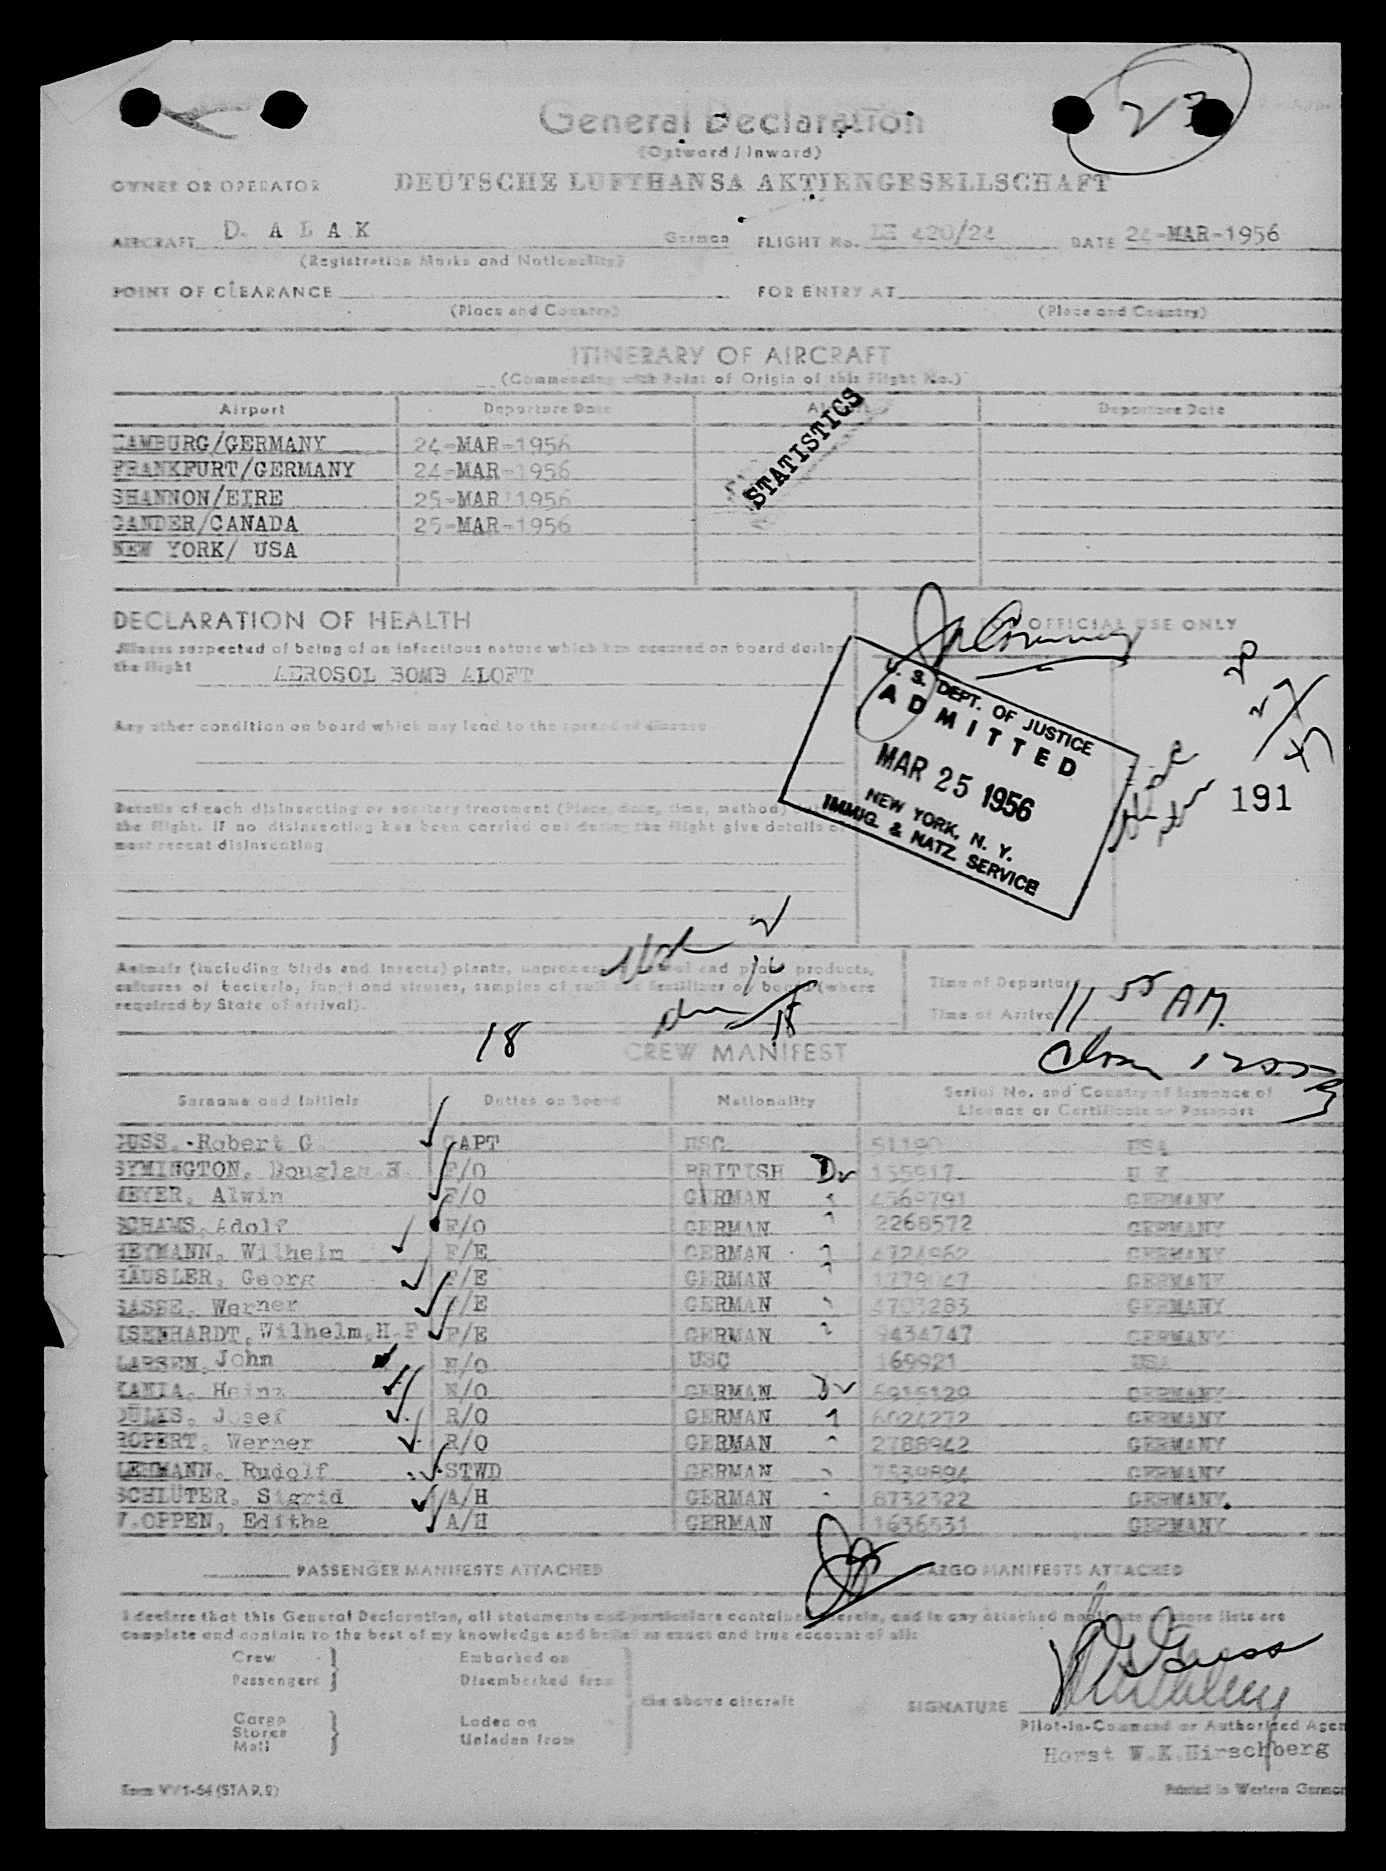 23
General Declaration
(Outward / Inward)
OWNER OR OPERATOR DEUTSCHE LUFTHANSA AKTIENGESELLSCHAFT
AIRCRAFT D. A L A K German FLIGHT No. LH 420/24 DATE 24-MAR-1956
(Registration Marks and Nationality)
POINT OF CLEARANCE FOR ENTRY AT
(Place and Country) (Place and Country)
ITINERARY OF AIRCRAFT
(Commencing with Point of Origin of this Flight No.)
Airport Departure Date Airport Departure Date
STATISTICS
HAMBURG/GERMANY 24-MAR-1956
FRANKFURT/GERMANY 24-MAR-1956
SHANNON/EIRE 25-MAR-1956
GANDER/CANADA 25-MAR-1956
NEW YORK/ USA
DECLARATION OF HEALTH OFFICIAL USE ONLY
Illness suspected of being of an infectious nature which has occured on board during
the flight AEROSOL BOMB ALOFT
Any other condition on board which may lead to the spread of disease
U. S. DEPT. OF JUSTICE
ADMITTED
MAR 25 1956
NEW YORK, N. Y.
IMMIG. & NATZ. SERVICE
191
Details of each disinsecting or sanitary treatment (Place, date, time, method)
the flight. If no disinsecting has been carried out during the flight give details of
most recent disinsecting
Animals (including birds and insects) plants, unprocessed animal and plant products,
cultures of bacteria, fungi and viruses, samples of soil and fertilizer on board (where
required by State of arrival).
Time of Departure
Time of Arrival 11 55 AM.
18
18
CREW MANIFEST
Surname and Initials Duties on Board Nationality Serial No. and Country of Issuance of
Licence or Certificate or Passport
GUSS, Robert G. CAPT USC 51190 USA
SYMINGTON, Douglas H. F/O BRITISH 155917 U K
MEYER, Alwin F/O GERMAN 4569791 GERMANY
SCHAMS, Adolf F/O GERMAN 2268572 GERMANY
HEYMANN, Wilhelm F/E GERMAN 4724962 GERMANY
HÄUSLER, Georg F/E GERMAN 1779047 GERMANY
SASSE, Werner F/E GERMAN 4703283 GERMANY
ISENHARDT, Wilhelm, H.F F/E GERMAN 9434747 GERMANY
LARSEN, John N/O USC 169921 USA
KANIA, Heinz N/O GERMAN 6915129 GERMANY
DÜLKS, Josef R/O GERMAN 6024272 GERMANY
ROPERT, Werner R/O GERMAN 2788942 GERMANY
LEHMANN, Rudolf STWD GERMAN 7539894 GERMANY
SCHLÜTER, Sigrid A/H GERMAN 8732322 GERMANY
V.OPPEN, Editha A/H GERMAN 1636531 GERMANY
PASSENGER MANIFESTS ATTACHED CARGO MANIFESTS ATTACHED
I declare that this General Declaration, all statements and particulars contained herein, and in any attached manifests or store lists are
complete and contain to the best of my knowledge and belief an exact and true account of all:
Crew Embarked on
Passengers Disembarked from
the above aircraft
Cargo Laden on
Stores
Mail Unladen from
SIGNATURE
Pilot-in-Command or Authorized Agent
Horst W.K.Hirschberg
Form VV1-54 (STA P. 9) Printed in Western German